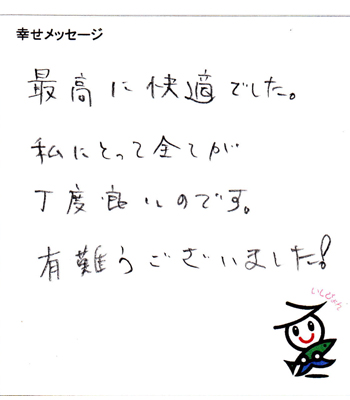 幸せメッセージ
最高に快適でした。
私にとって全てが
丁度良いのです。
有難うございました!